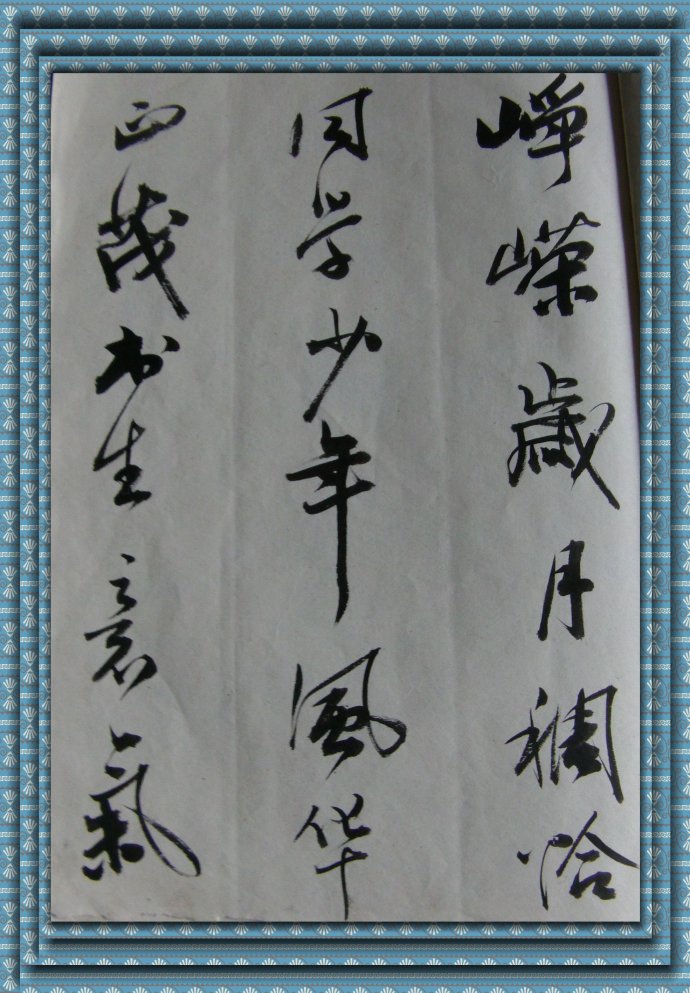 峥嵘歲月稠恰
同学少年風华
正茂书生意氣